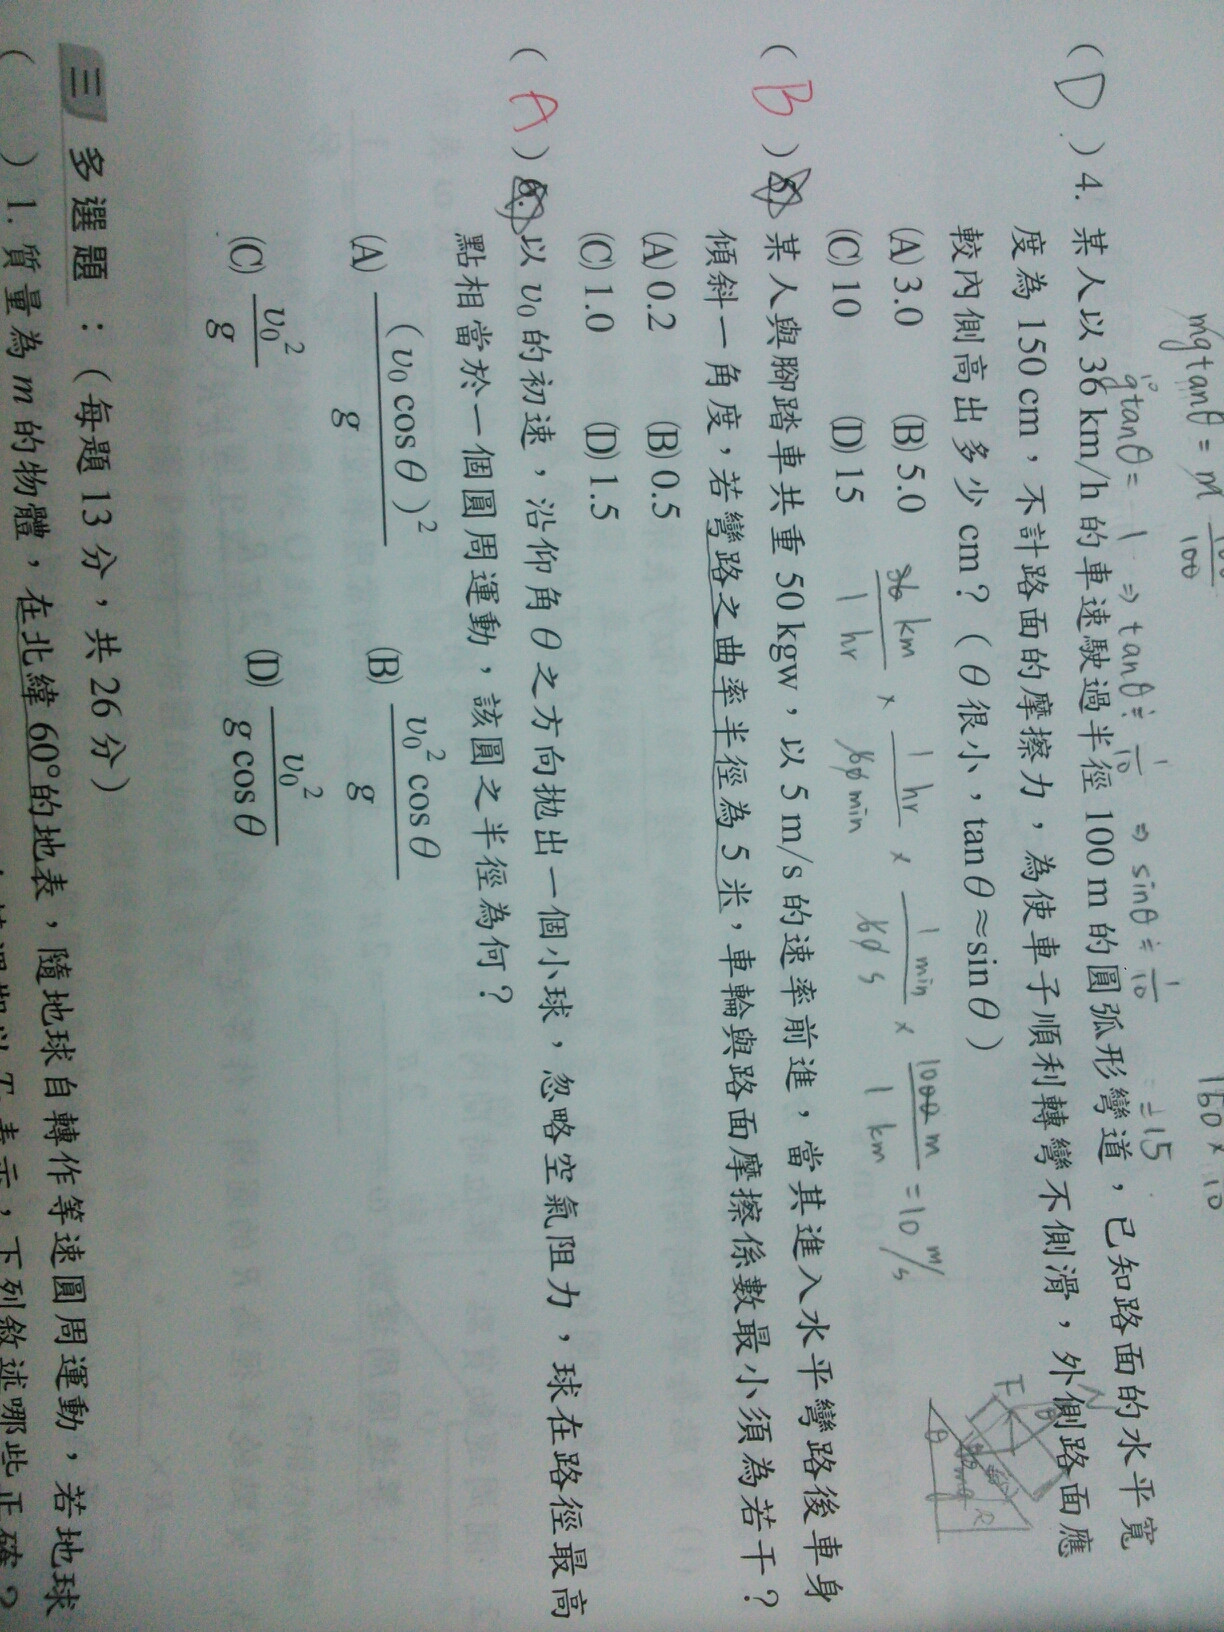 mgtanθ = m
100
gtanθ = 1 ⇒ tanθ = 1/10 ⇒ sinθ ≒ 1/10
= 15
( D ) 4. 某人以 36 km/h 的車速駛過半徑 100 m 的圓弧形彎道，已知路面的水平寬
度為 150 cm，不計路面的摩擦力，為使車子順利轉彎不側滑，外側路面應
較內側高出多少 cm？（θ 很小，tanθ≈sinθ）
(A) 3.0 (B) 5.0
(C) 10 (D) 15
36 km / 1 hr × 1 hr / 60 min × 1 min / 60 s × 1000 m / 1 km = 10 m/s
( B ) 5. 某人與腳踏車共重 50 kgw，以 5 m/s 的速率前進，當其進入水平彎路後車身
傾斜一角度，若彎路之曲率半徑為 5 米，車輪與路面摩擦係數最小須為若干？
(A) 0.2 (B) 0.5
(C) 1.0 (D) 1.5
( A ) 6. 以 v₀ 的初速，沿仰角 θ 之方向拋出一個小球，忽略空氣阻力，球在路徑最高
點相當於一個圓周運動，該圓之半徑為何？
(A) (v₀ cosθ)² / g (B) v₀² cosθ / g
(C) v₀² / g (D) v₀² / g cosθ
三 多選題：（每題 13 分，共 26 分）
( ) 1. 質量為 m 的物體，在北緯 60° 的地表，隨地球自轉作等速圓周運動，若地球
表示，下列敘述哪些正確？